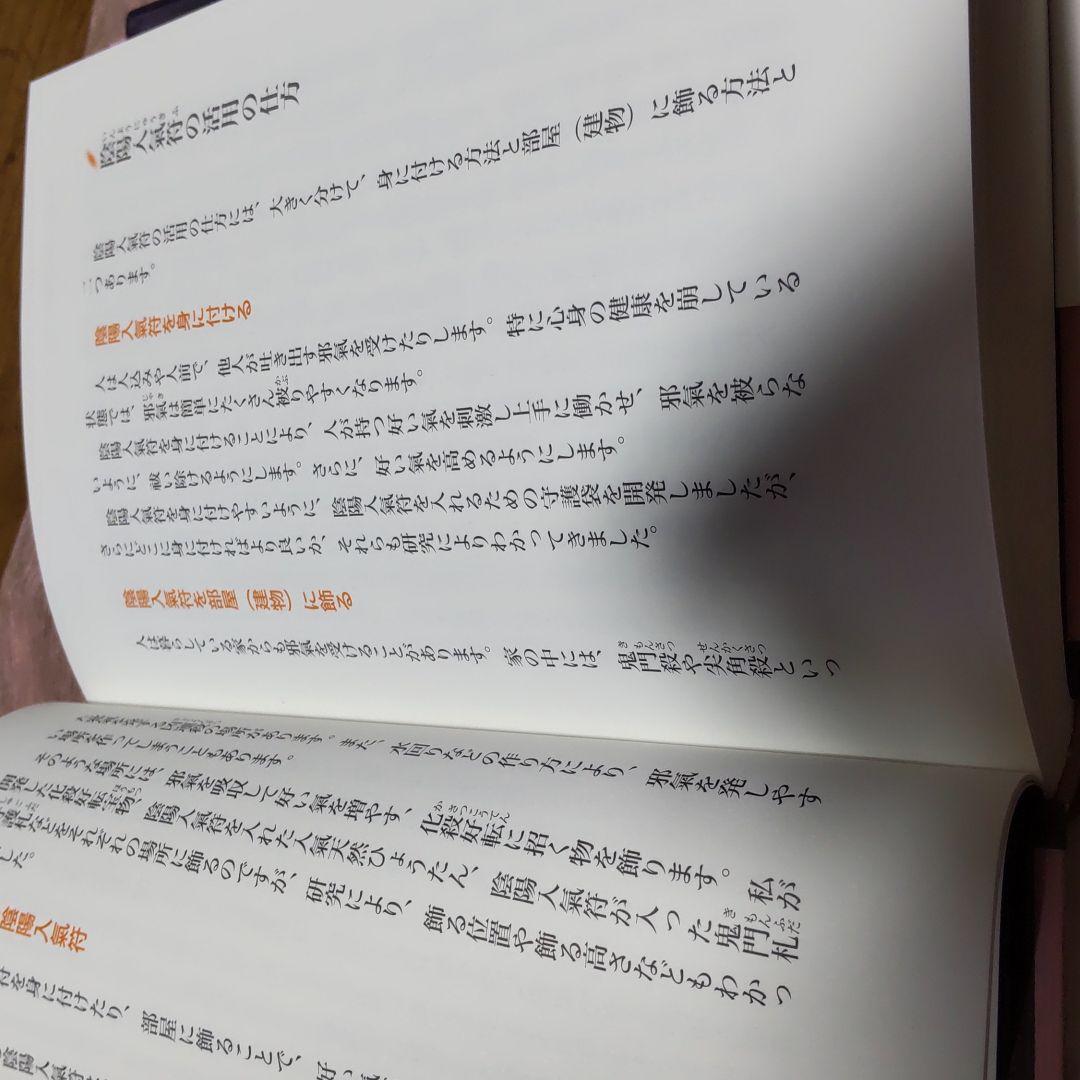 陰陽人氣符の活用の仕方
陰陽人氣符の活用の仕方には、大きく分けて、身に付ける方法と部屋（建物）に飾る方法と
二つあります。
陰陽人氣符を身に付ける
人は人込みや人前で、他人が吐き出す邪氣を受けたりします。特に心身の健康を崩している
状態では、邪氣は簡単にたくさん被りやすくなります。
陰陽人氣符を身に付けることにより、人が持つ好い氣を刺激し上手に働かせ、邪氣を被らな
いように、祓い除けるようにします。さらに、好い氣を高めるようにします。
陰陽人氣符を身に付けやすいように、陰陽人氣符を入れるための守護袋を開発しましたが、
さらにどこに身に付ければより良いか、それらも研究によりわかってきました。
陰陽人氣符を部屋（建物）に飾る
人は暮らしている家からも邪氣を受けることがあります。家の中には、鬼門殺や尖角殺といっ
の場所があります。また、水回りなどの作り方により、邪氣を発しやす
い場所を作ってしまうこともあります。
そのような場所には、邪氣を吸収して好い氣を増やす、化殺好転に招く物を飾ります。私が
開発した化殺好転宝物、陰陽人氣符を入れた人氣天然ひょうたん、陰陽人氣符が入った鬼門札
護札などをそれぞれの場所に飾るのですが、研究により、飾る位置や飾る高さなどもわかっ
した。
陰陽人氣符
符を身に付けたり、部屋に飾ることで、好い氣
陰陽人氣符